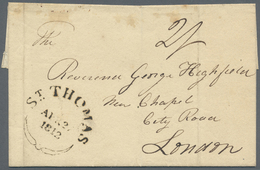 2/
The
Reverend George Highfield
New Chapel
City Road
London
ST THOMAS
1842